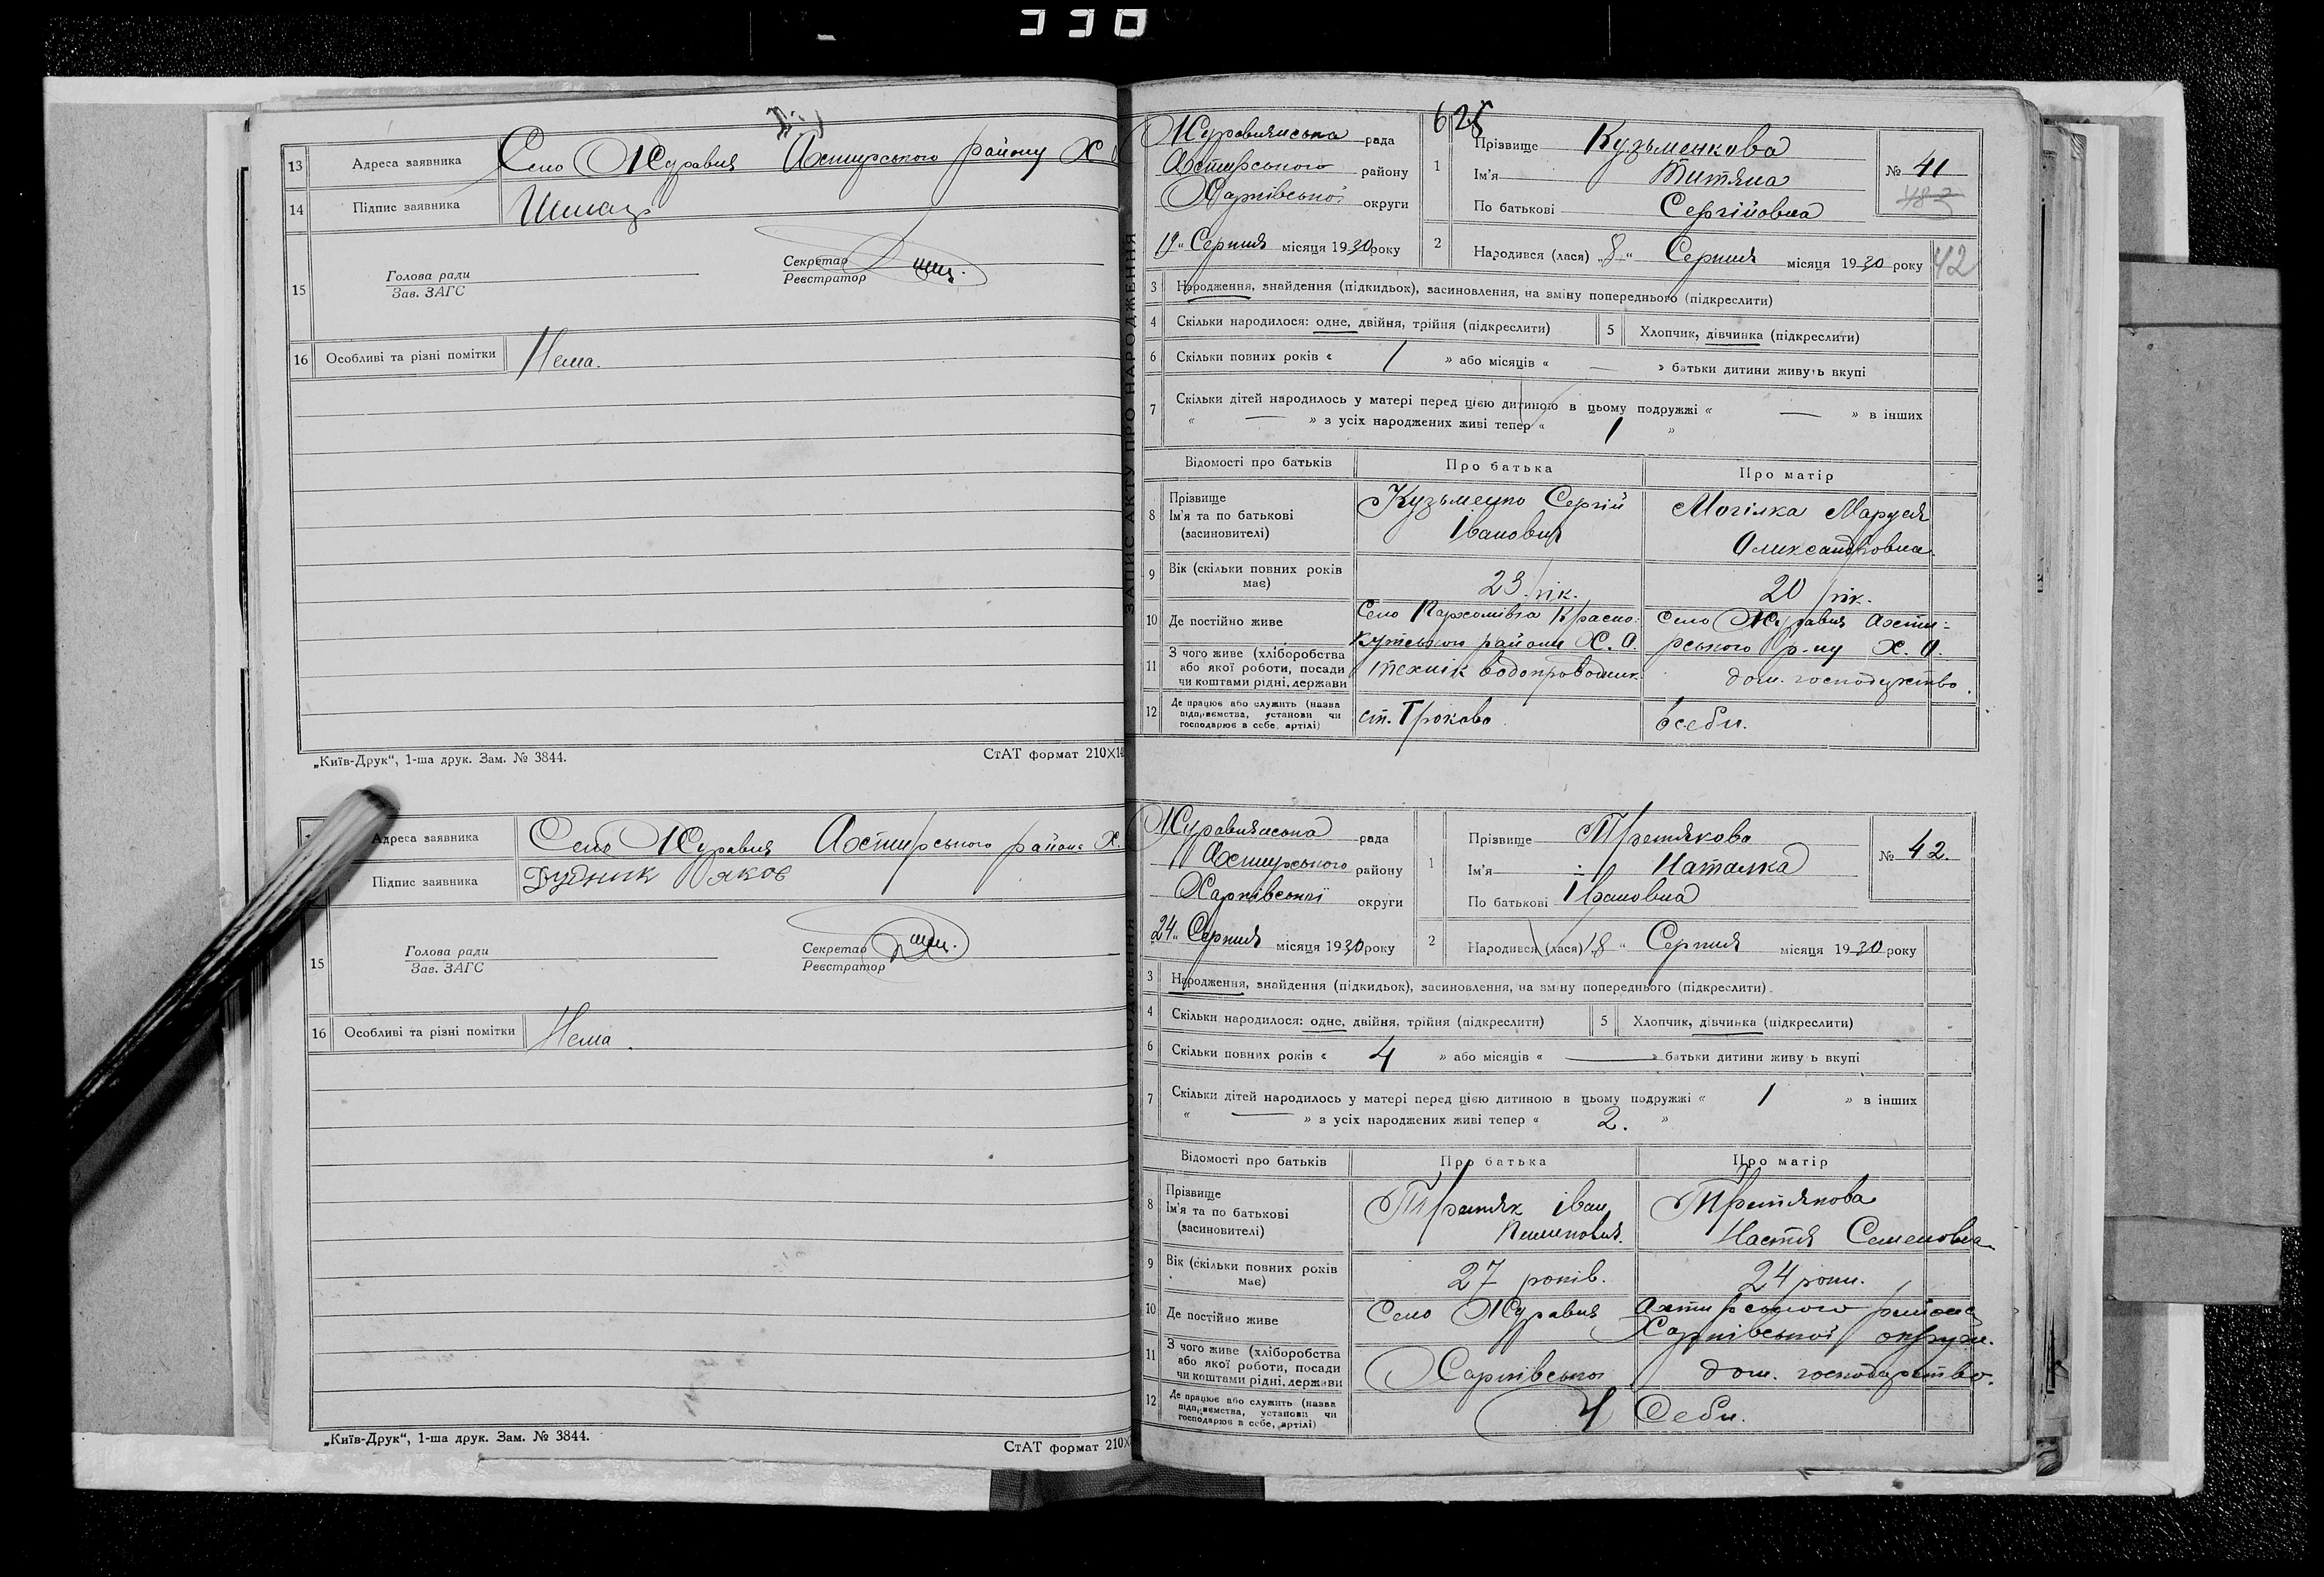 330
13 Адреса заявника Село Журавня Ахтирського району Х
14 Підпис заявника
15 Голова ради Секретар
Зав. ЗАГС Реєстратор
16 Особливі та різні помітки Нема.
„Київ-Друк“, 1-ша друк. Зам. № 3844. СтАТ формат 210×14
Адреса заявника Село Журавня Ахтирського района Х.
Підпис заявника Дудник Яков
15 Голова ради Секретар
Зав. ЗАГС Реєстратор
16 Особливі та різні помітки Нема.
„Київ-Друк“, 1-ша друк. Зам. № 3844. СтАТ формат 210×
ЗАПИС АКТУ ПРО НАРОДЖЕННЯ
628
Журавнянська рада
Ахтирського району
Харківської округи
19 „ Серпня місяця 1930 року
1 Прізвище Кузьменкова
Ім'я Титяна
По батькові Сергійовна
№ 41
2 Народився (лася) „8“ Серпня місяця 1930 року 42
3 Народження, знайдення (підкидьок), засиновлення, на зміну попереднього (підкреслити)
4 Скільки народилося: одне, двійня, трійня (підкреслити) 5 Хлопчик, дівчинка (підкреслити)
6 Скільки повних років « 1 » або місяців « — » батьки дитини живуть вкупі
7 Скільки дітей народилось у матері перед цією дитиною в цьому подружжі « — » в інших
« — » з усіх народжених живі тепер « 1 »
Відомості про батьків Про батька Про матір
8 Прізвище Ім'я та по батькові (засиновителі) Кузьменко Сергій Іванович Могілка Маруся Олександровна
9 Вік (скільки повних років має) 23 рік. 20 рік.
10 Де постійно живе Село Пархомівка Красно-Кутського району Х.О. Село Журавня Ахти-рського р-ну Х.О.
11 З чого живе (хліборобства або якої роботи, посади чи коштами рідні, держави технік водопроводчик. дом. господарство.
12 Де працює або служить (назва підприємства, установи чи господарює в себе, артілі) ст. в себи.
Журавнянська рада
Ахтирського району
Харківської округи
„24“ Серпня місяця 1930 року
1 Прізвище Третякова
Ім'я Наталка
По батькові Івановна
№ 42.
2 Народився (лася) 18 “ Серпня місяця 1930 року
3 Народження, знайдення (підкидьок), засиновлення, на зміну попереднього (підкреслити).
4 Скільки народилося: одне, двійня, трійня (підкреслити) 5 Хлопчик, дівчинка (підкреслити)
6 Скільки повних років « 4 » або місяців « — » батьки дитини живуть вкупі
7 Скільки дітей народилось у матері перед цією дитиною в цьому подружжі « 1 » в інших
« — » з усіх народжених живі тепер « 2. »
Відомості про батьків Про батька Про матір
8 Прізвище Ім'я та по батькові (засиновителі) Третяк Іван Пилипович. Третякова Настя Семеновна
9 Вік (скільки повних років має) 27 років. 24 роки.
10 Де постійно живе Село Журавня Ахтирського района Харківської округи.
11 З чого живе (хліборобства або якої роботи, посади чи коштами рідні, держави Харківської дом. господарство.
12 Де працює або служить (назва підприємства, установи чи господарює в себе, артілі) У Себи.